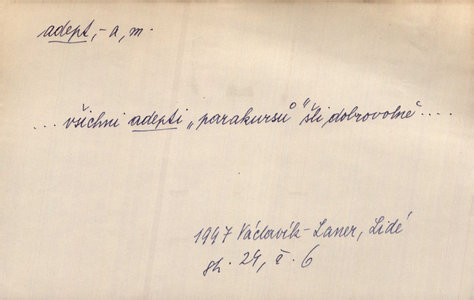 adept, -a, m.
... všichni adepti „parakursů“ šli dobrovolně ....
1997 Václavík-Laner, Lidé
24, č. 6